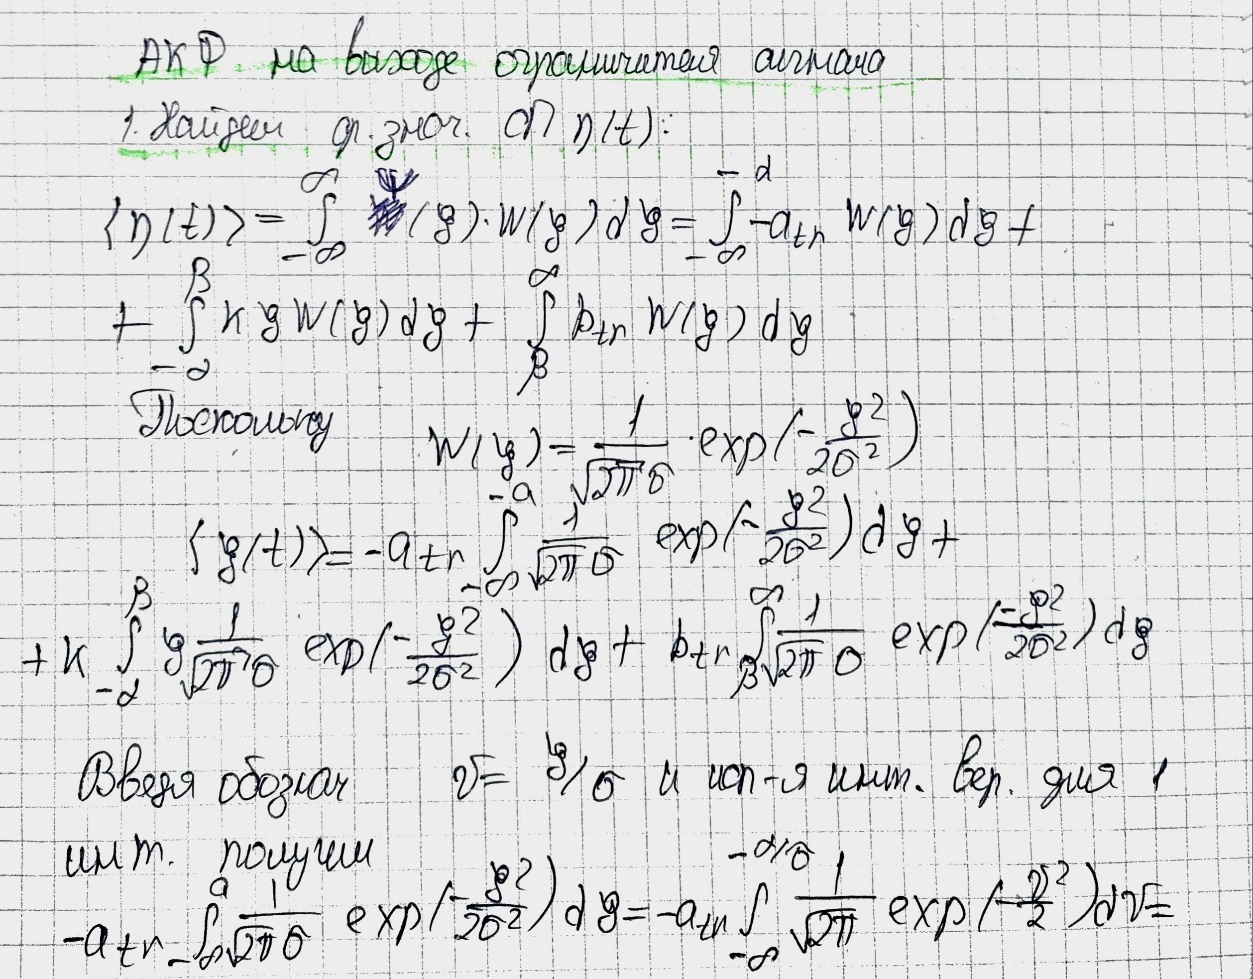 АКФ на выходе ограничителя сигнала
1. Найдем ср. знач. СП η(t):
⟨η(t)⟩ = ∫_{-∞}^{∞} Ψ(y)·W(y)dy = ∫_{-∞}^{-α} -a_{tr} W(y)dy +
+ ∫_{-α}^{β} K y W(y)dy + ∫_{β}^{∞} b_{tr} W(y)dy
Поскольку W(y) = 1/(√2π σ) · exp(-y²/2σ²)
⟨y(t)⟩ = -a_{tr} ∫_{-∞}^{-a} 1/(√2π σ) exp(-y²/2σ²)dy +
+ K ∫_{-α}^{β} y 1/(√2π σ) exp(-y²/2σ²) dy + b_{tr} ∫_{β}^{∞} 1/(√2π σ) exp(-y²/2σ²)dy
Введя обознач v = y/σ и исп-я инт. вер. для 1
инт. получим
-a_{tr} ∫_{-∞}^{a} 1/(√2π σ) exp(-y²/2σ²)dy = -a_{tr} ∫_{-∞}^{-α/σ} 1/√2π exp(-v²/2)dv =